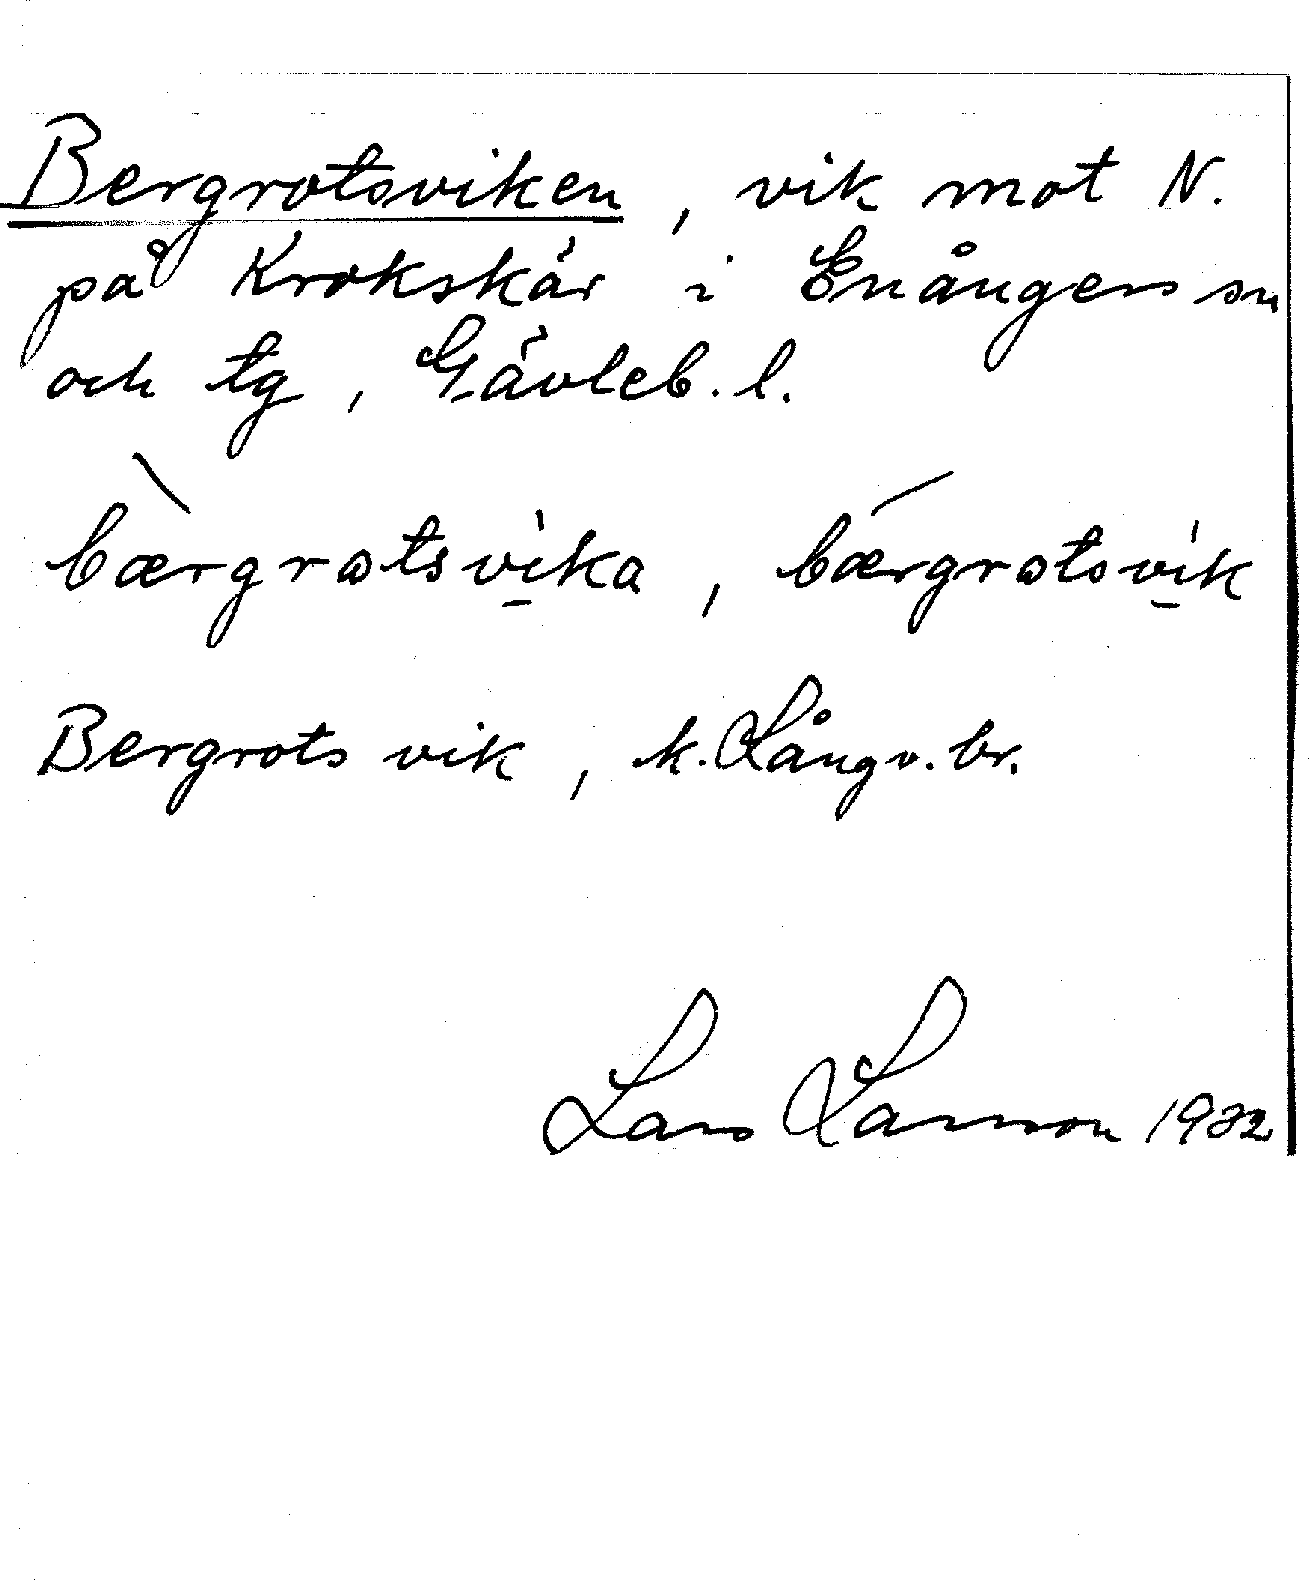 Bergrotsviken, vik mot N.
på Krokskär i Enångers sn
och tg, Gävleb. l.
bærgrotsvika, bærgrotsvik
Bergrots vik, k. Långv. br.
Lars Larsson 1932